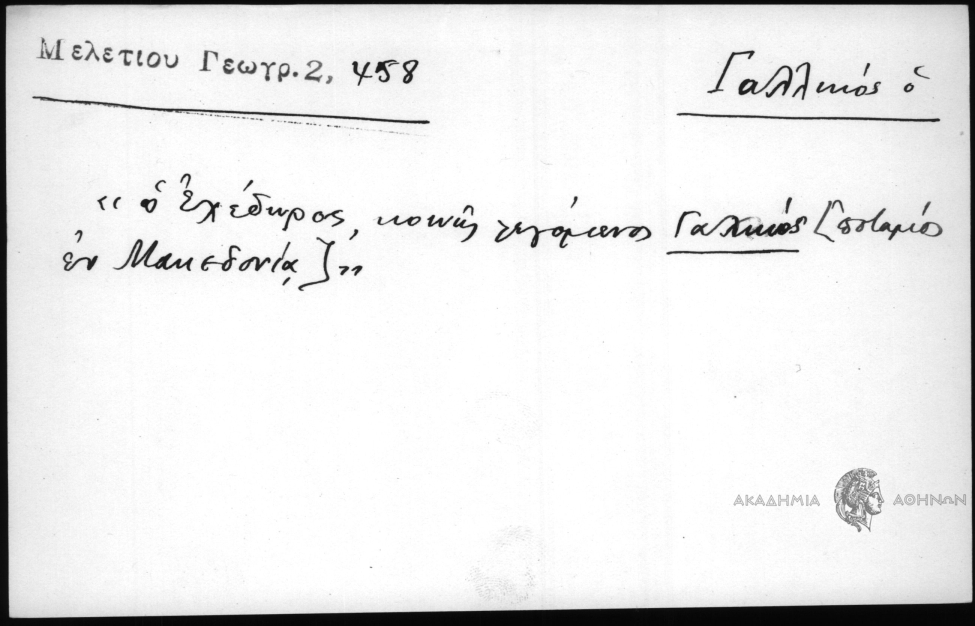 Μελετιου Γεωγρ. 2, 458
Γαλλικός ὁ
"ὁ Ἐχέδωρος, κοινῶς λεγόμενος Γαλικός [ποταμός
ἐν Μακεδονίᾳ]"
ΑΚΑΔΗΜΙΑ ΑΘΗΝΩΝ